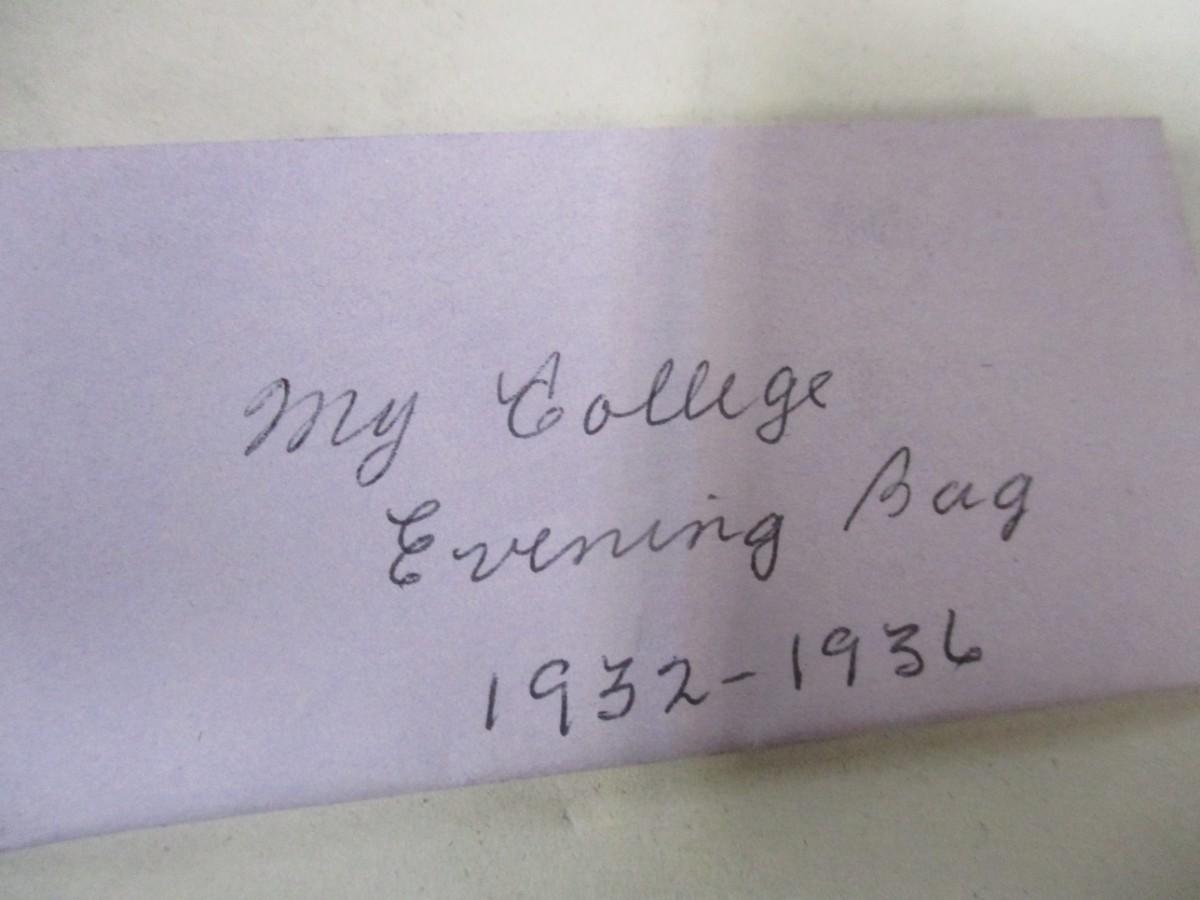 My College
Evening Bag
1932-1936